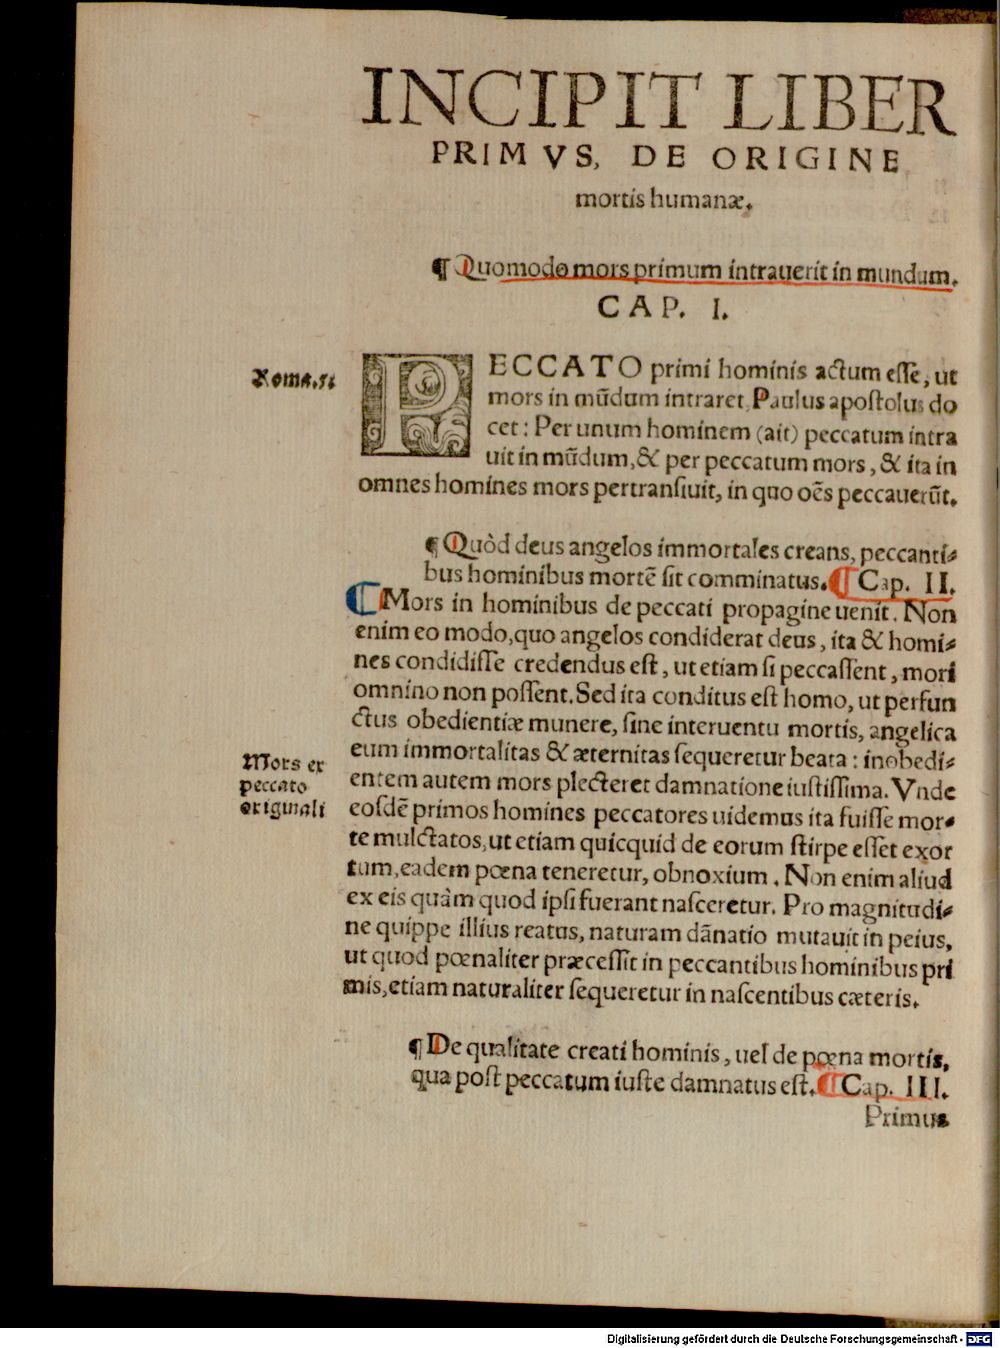 INCIPIT LIBER
PRIMVS, DE ORIGINE
mortis humanæ.
¶ Quomodo mors primum intrauerit in mundum.
CAP. I.
Roma.5.
PECCATO primi hominis actum esse, ut
mors in mūdum intraret, Paulus apostolus do
cet: Per unum hominem (ait) peccatum intra
uit in mūdum, & per peccatum mors, & ita in
omnes homines mors pertransiuit, in quo oēs peccauerūt.
¶ Quòd deus angelos immortales creans, peccanti-
bus hominibus mortē sit comminatus. ¶ Cap. II.
¶ Mors in hominibus de peccati propagine uenit. Non
enim eo modo, quo angelos condiderat deus, ita & homi-
nes condidisse credendus est, ut etiam si peccassent, mori
omnino non possent. Sed ita conditus est homo, ut perfun
ctus obedientiæ munere, sine interuentu mortis, angelica
eum immortalitas & æternitas sequeretur beata: inobedi-
entem autem mors plecteret damnatione iustissima. Vnde
eosdē primos homines peccatores uidemus ita fuisse mor-
te mulctatos, ut etiam quicquid de eorum stirpe esset exor
tum, eadem pœna teneretur, obnoxium. Non enim aliud
ex eis quàm quod ipsi fuerant nasceretur. Pro magnitudi-
ne quippe illius reatus, naturam dānatio mutauit in peius,
ut quod pœnaliter præcessit in peccantibus hominibus pri
mis, etiam naturaliter sequeretur in nascentibus cæteris.
Mors ex
peccato
originali
¶ De qualitate creati hominis, uel de pœna mortis,
qua post peccatum iuste damnatus est. ¶ Cap. III.
Primus
Digitalisierung gefördert durch die Deutsche Forschungsgemeinschaft - DFG